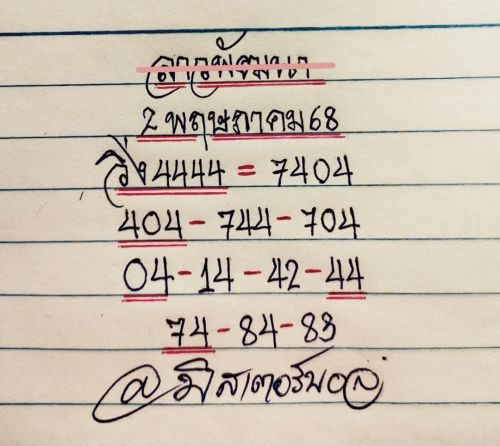 ลาวพัฒนา
2 พฤษภาคม 68
วิ่ง 4444 = 7404
404 - 744 - 704
04 - 14 - 42 - 44
74 - 84 - 83
@ มิสเตอร์บอล